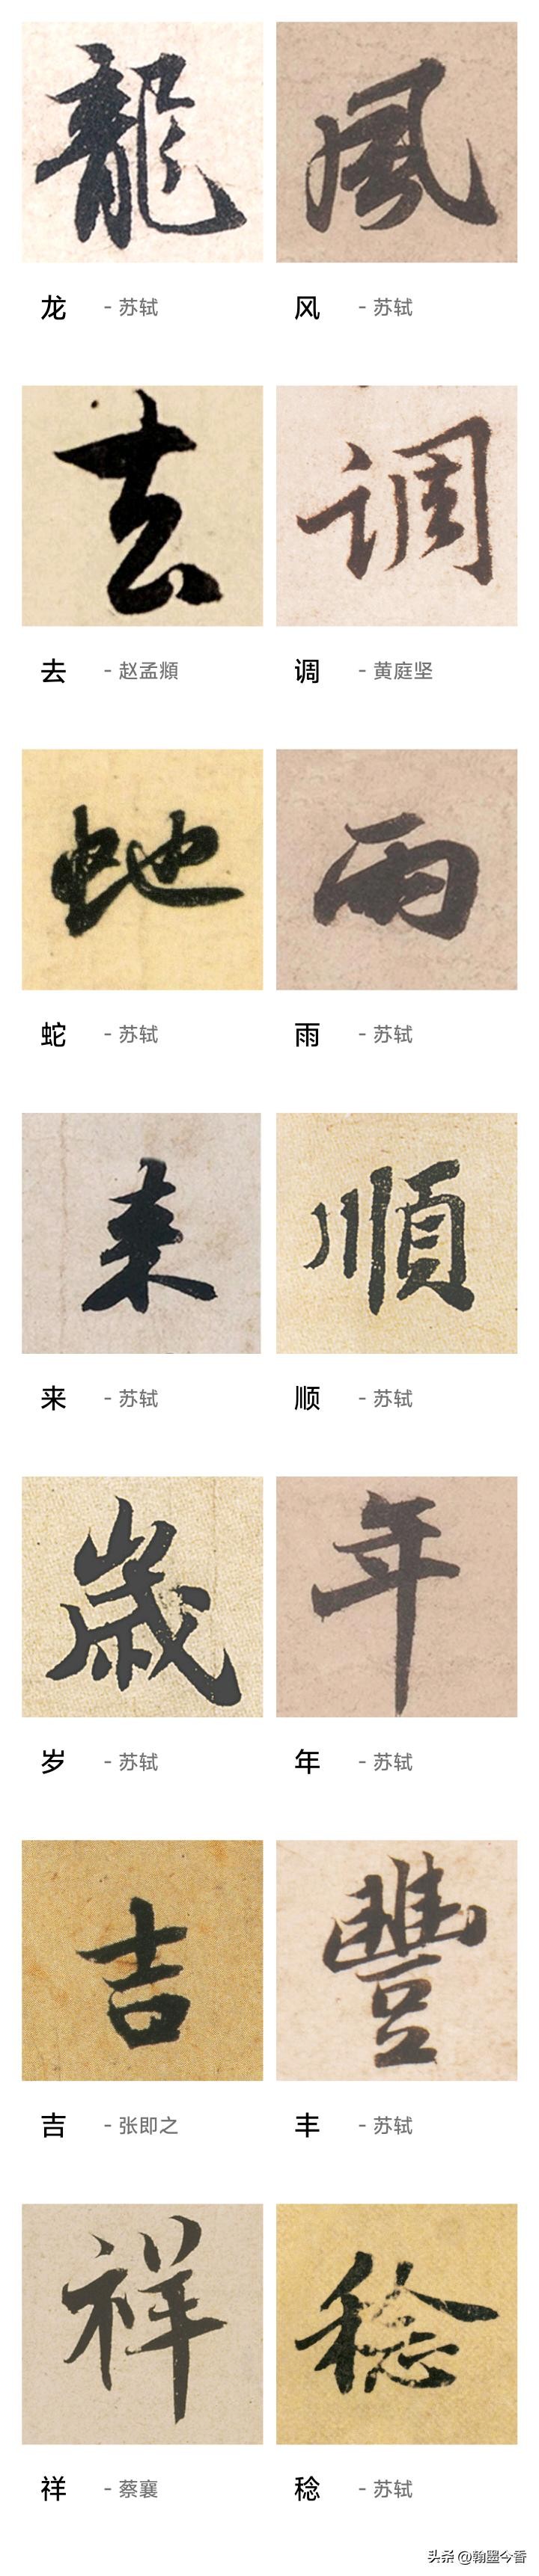 龍 風
龙 - 苏轼 风 - 苏轼
去 调
去 - 赵孟頫 调 - 黄庭坚
虵 雨
蛇 - 苏轼 雨 - 苏轼
来 順
来 - 苏轼 顺 - 苏轼
歳 年
岁 - 苏轼 年 - 苏轼
吉 豐
吉 - 张即之 丰 - 苏轼
祥 稔
祥 - 蔡襄 稔 - 苏轼
头条 @翰墨今香